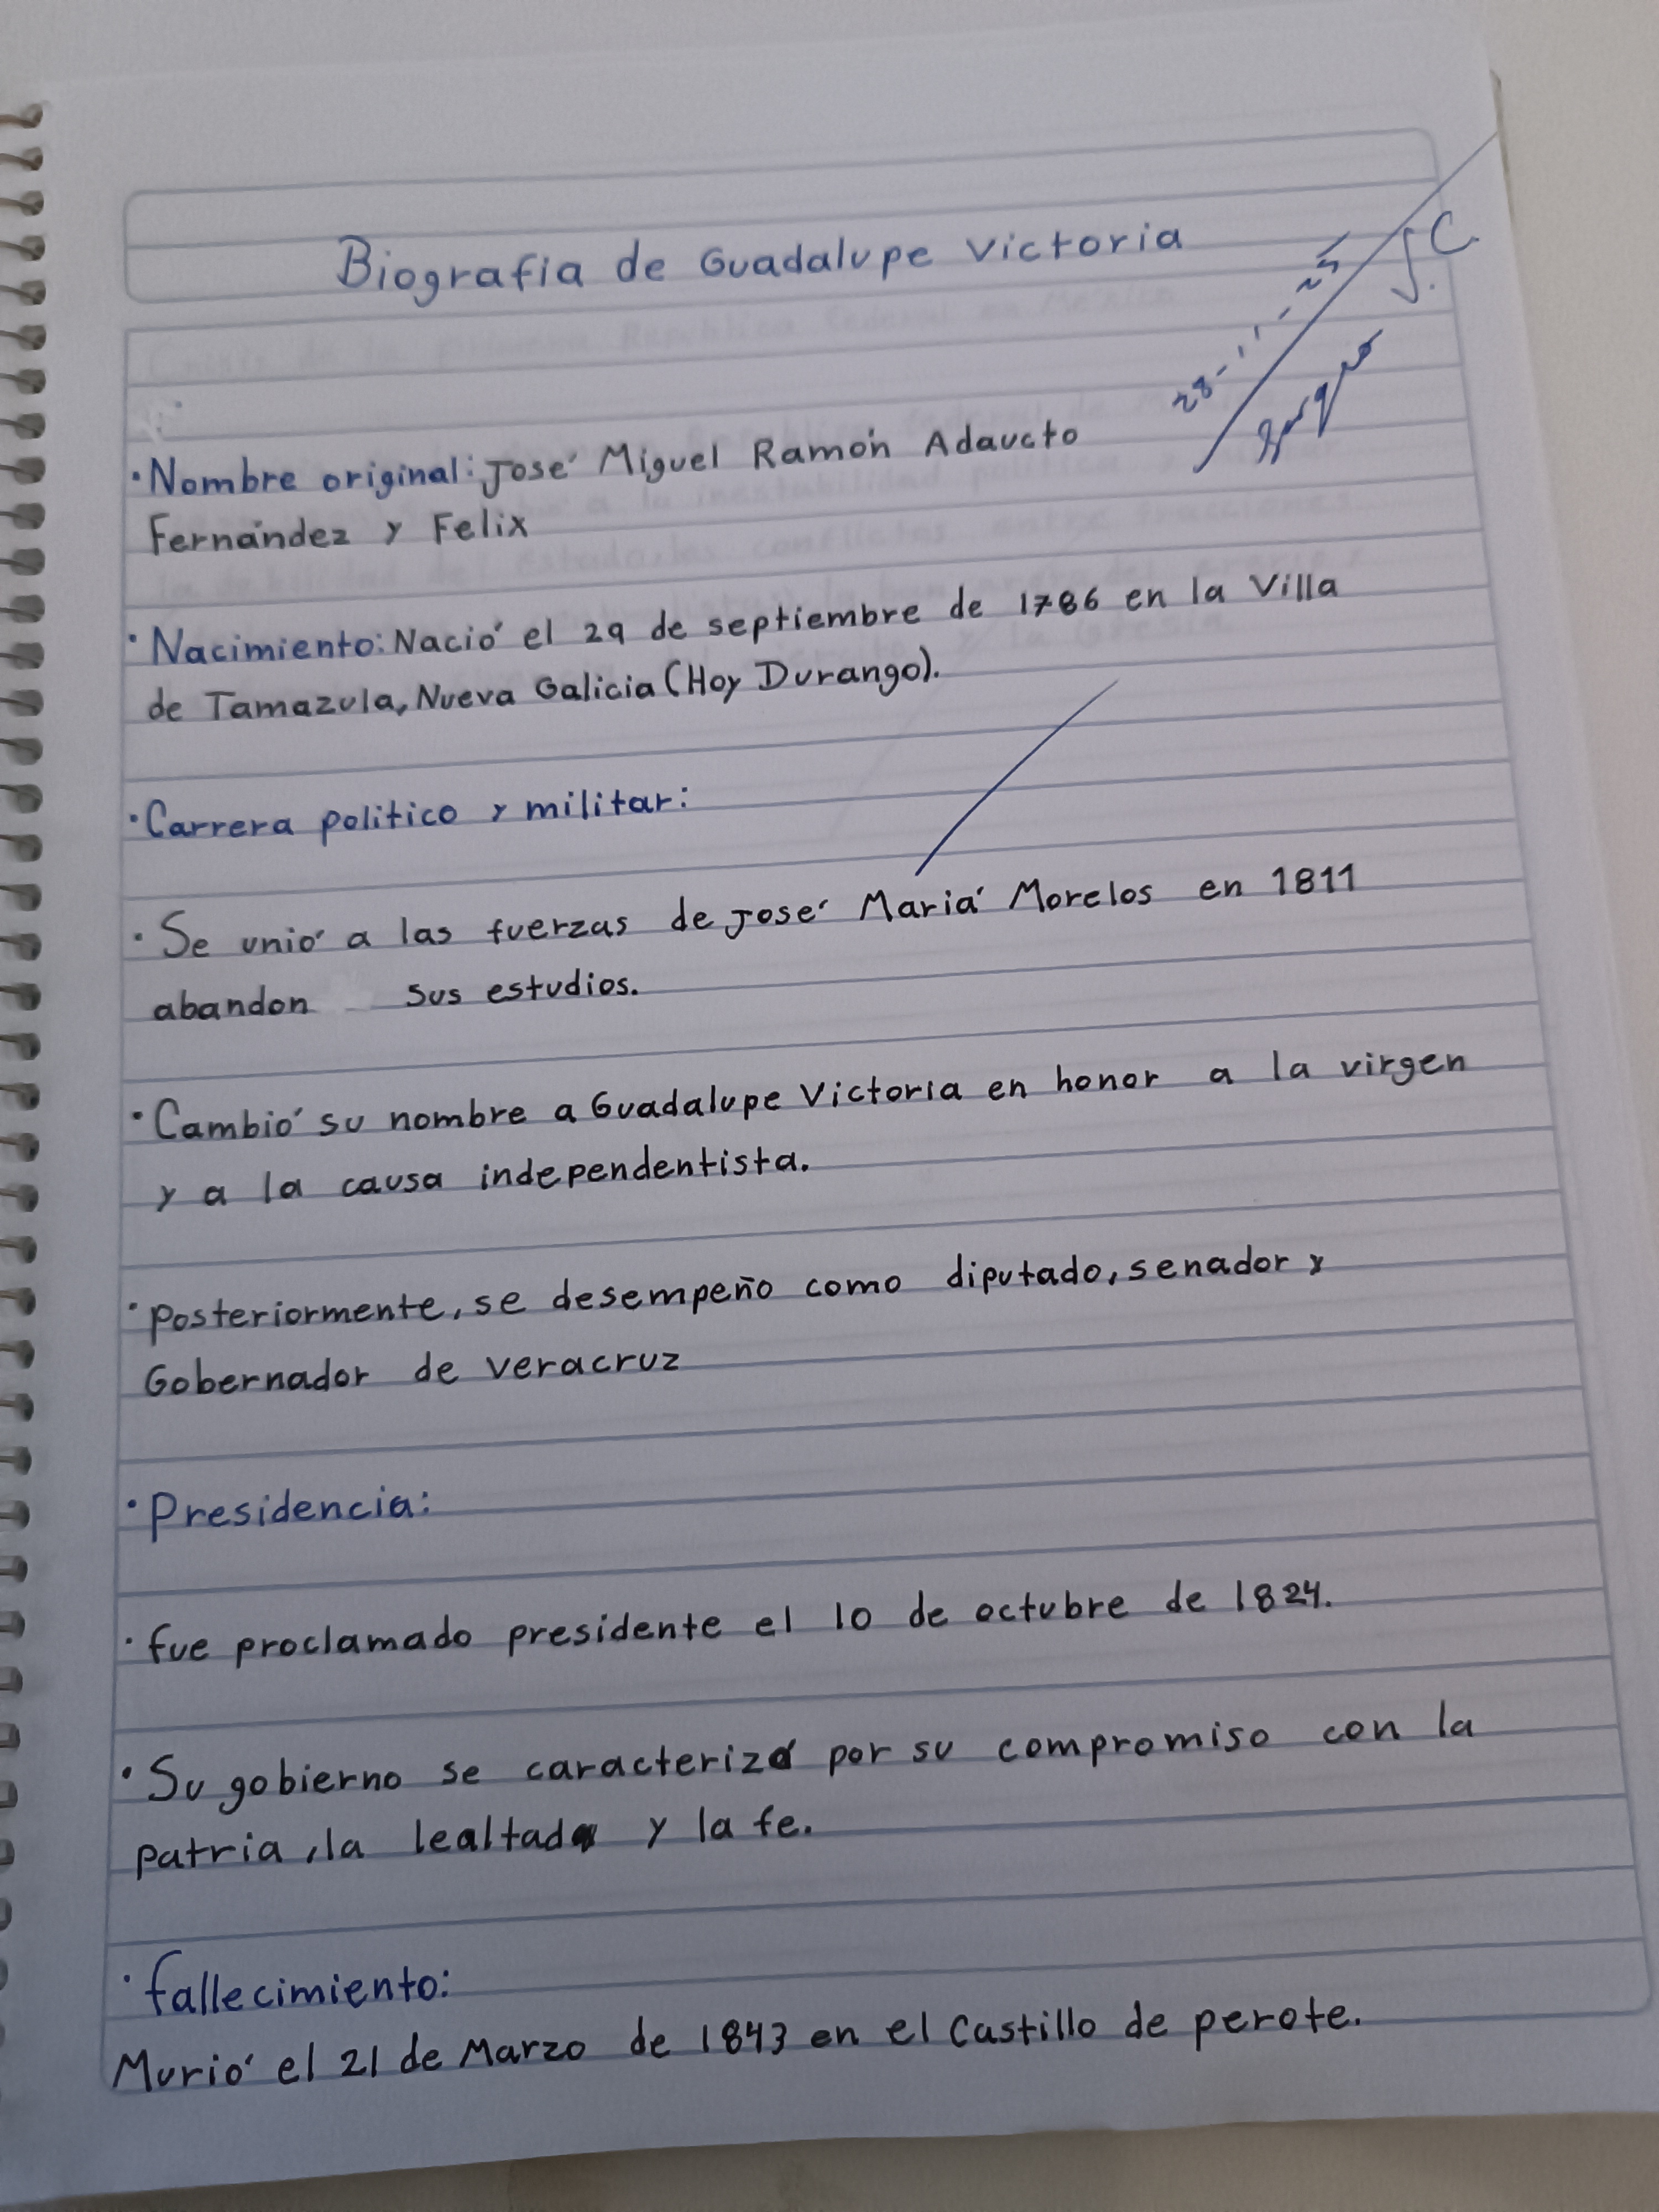 Biografia de Guadalupe Victoria
28-11-25
J.C.
• Nombre original: José Miguel Ramón Adaucto
Fernández y Felix
• Nacimiento: Nació el 29 de septiembre de 1786 en la Villa
de Tamazula, Nueva Galicia (Hoy Durango).
• Carrera politico y militar:
• Se unió a las fuerzas de José Mariá Morelos en 1811
abandon sus estudios.
• Cambió su nombre a Guadalupe Victoria en honor a la virgen
y a la causa independentista.
• Posteriormente, se desempeño como diputado, senador y
Gobernador de Veracruz
• Presidencia:
• fue proclamado presidente el 10 de octubre de 1824.
• Su gobierno se caracterizó por su compromiso con la
patria, la lealtad y la fe.
• fallecimiento:
Murió el 21 de Marzo de 1843 en el Castillo de perote.